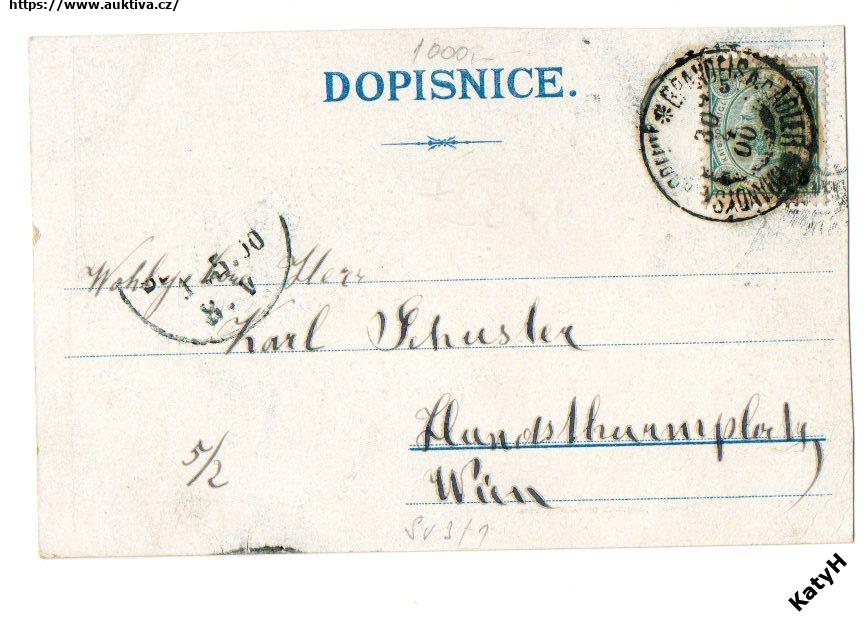 https://www.auktiva.cz/
1000,-
DOPISNICE.
BRANDEIS A.D. ADLER
BRANDÝS
30 4 00
5.00
8.V
Wohlgeboren Herr
Karl Schuster
Hundsthurmplatz
5/2
Wien
SV 3/1
KatyH